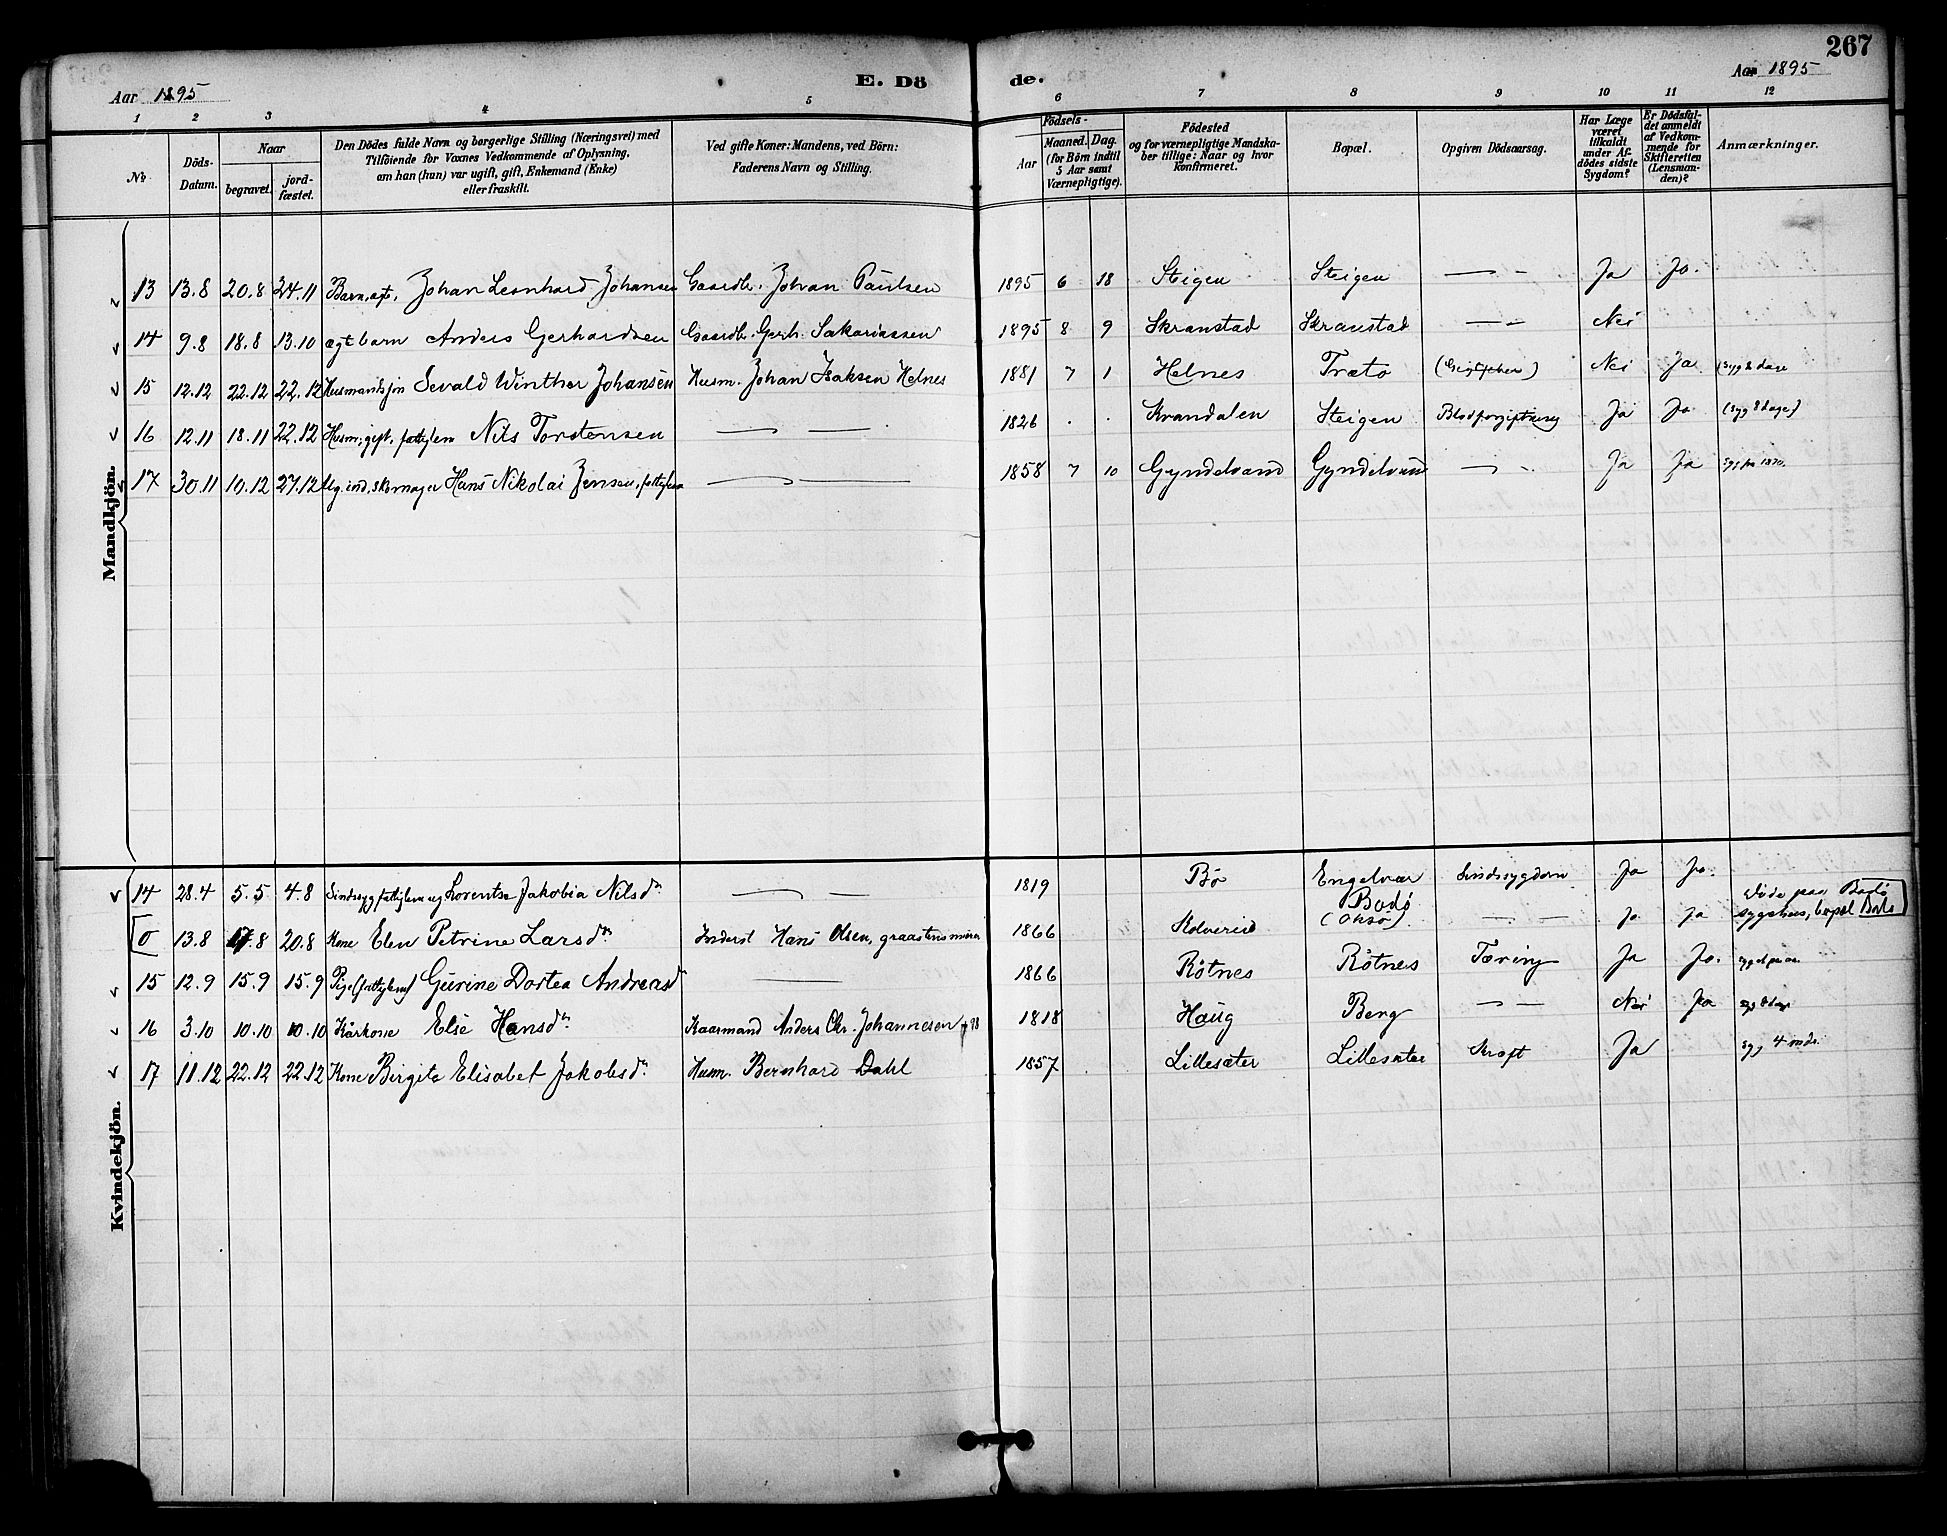 267
Aar 1895 E. Dö de. Aar 1895
1 2 3 4 5 6 7 8 9 10 11 12
No.
Döds-Datum.
Naar
begravet. jord-fæstet.
Den Dödes fulde Navn og borgerlige Stilling (Næringsvei) med
Tilföiende for Voxnes Vedkommende af Oplysning,
om han (hun) var ugift, gift, Enkemand (Enke)
eller fraskilt.
Ved gifte Koner: Mandens, ved Börn:
Faderens Navn og Stilling.
Födsels-
Aar Maaned. Dag.
(for Börn indtil
5 Aar samt
Værnepligtige).
Födested
og for værnepligtige Mandska-
ber tillige: Naar og hvor
konfirmeret.
Bopæl.
Opgiven Dödsaarsag.
Har Læge
været
tilkaldt
under Af-
dödes sidste
Sygdom?
Er Dödsfal-
det anmeldt
af Vedkom-
mende for
Skifteretten
(Lensman-
den)?
Anmærkninger.
Mandkjön.
13 13.8 20.8 24.11 Barn, ægte, Johan Leonhard Johansen Gaardb. Johan Paulsen 1895 6 18 Steigen Steigen — - Ja Ja.
14 9.8 18.8 13.10 ægt barn Anders Gerhardsen Gaardb. Gerh. Sakariassen 1895 8 9 Skranstad Skranstad — - Nei
15 12.12 22.12 22.12 Husmandssøn Sevald Winther Johansen Husm. Johan Isaksen Helnes 1881 7 1 Helnes Trætø Nei Ja (syg 8 dage
16 12.11 18.11 22.12 Husm., gift, fattiglem Nils Torstensen — — 1826 . . Kvandalen Steigen Blodforgiftning Ja Ja (syg 8 dage)
17 30.11 10.12 27.12 skomager Hans Nikolai Jensen, fattiglem — — 1858 7 10 Gyndelvand Gyndelvand — - Ja Ja
Kvindekjön.
14 28.4 5.5 4.8 Sindssyg fattiglem Lorentse Jakobia Nilsdr. — — 1819 Bø Engelvær Sindssygdom Ja Ja.
0 13.8 17.8 20.8 Kone Elen Petrine Larsdr. Inderst Hans Olsen, graastensmurer 1866 Kolvereid Bodø — — Ja Ja Døde paa Bodø
sygehus, bopæl Bodø
15 12.9 15.9 15.9 Pige (fattiglem) Gurine Dortea Andreasd — 1866 Røtnes Røtnes Tæring Ja Ja.
16 3.10 10.10 10.10 Kårkone Else Hansdr. Kaarmand Anders Chr. Johannesen + 98 1818 Haug Berg — — Nei Ja syg 8 dage
17 11.12 22.12 22.12 Kone Birgite Elisabet Jakobsdr. Husm. Bernhard Dahl 1857 Lillesæter Lillesæter Kræft Ja syg 4 mdr.